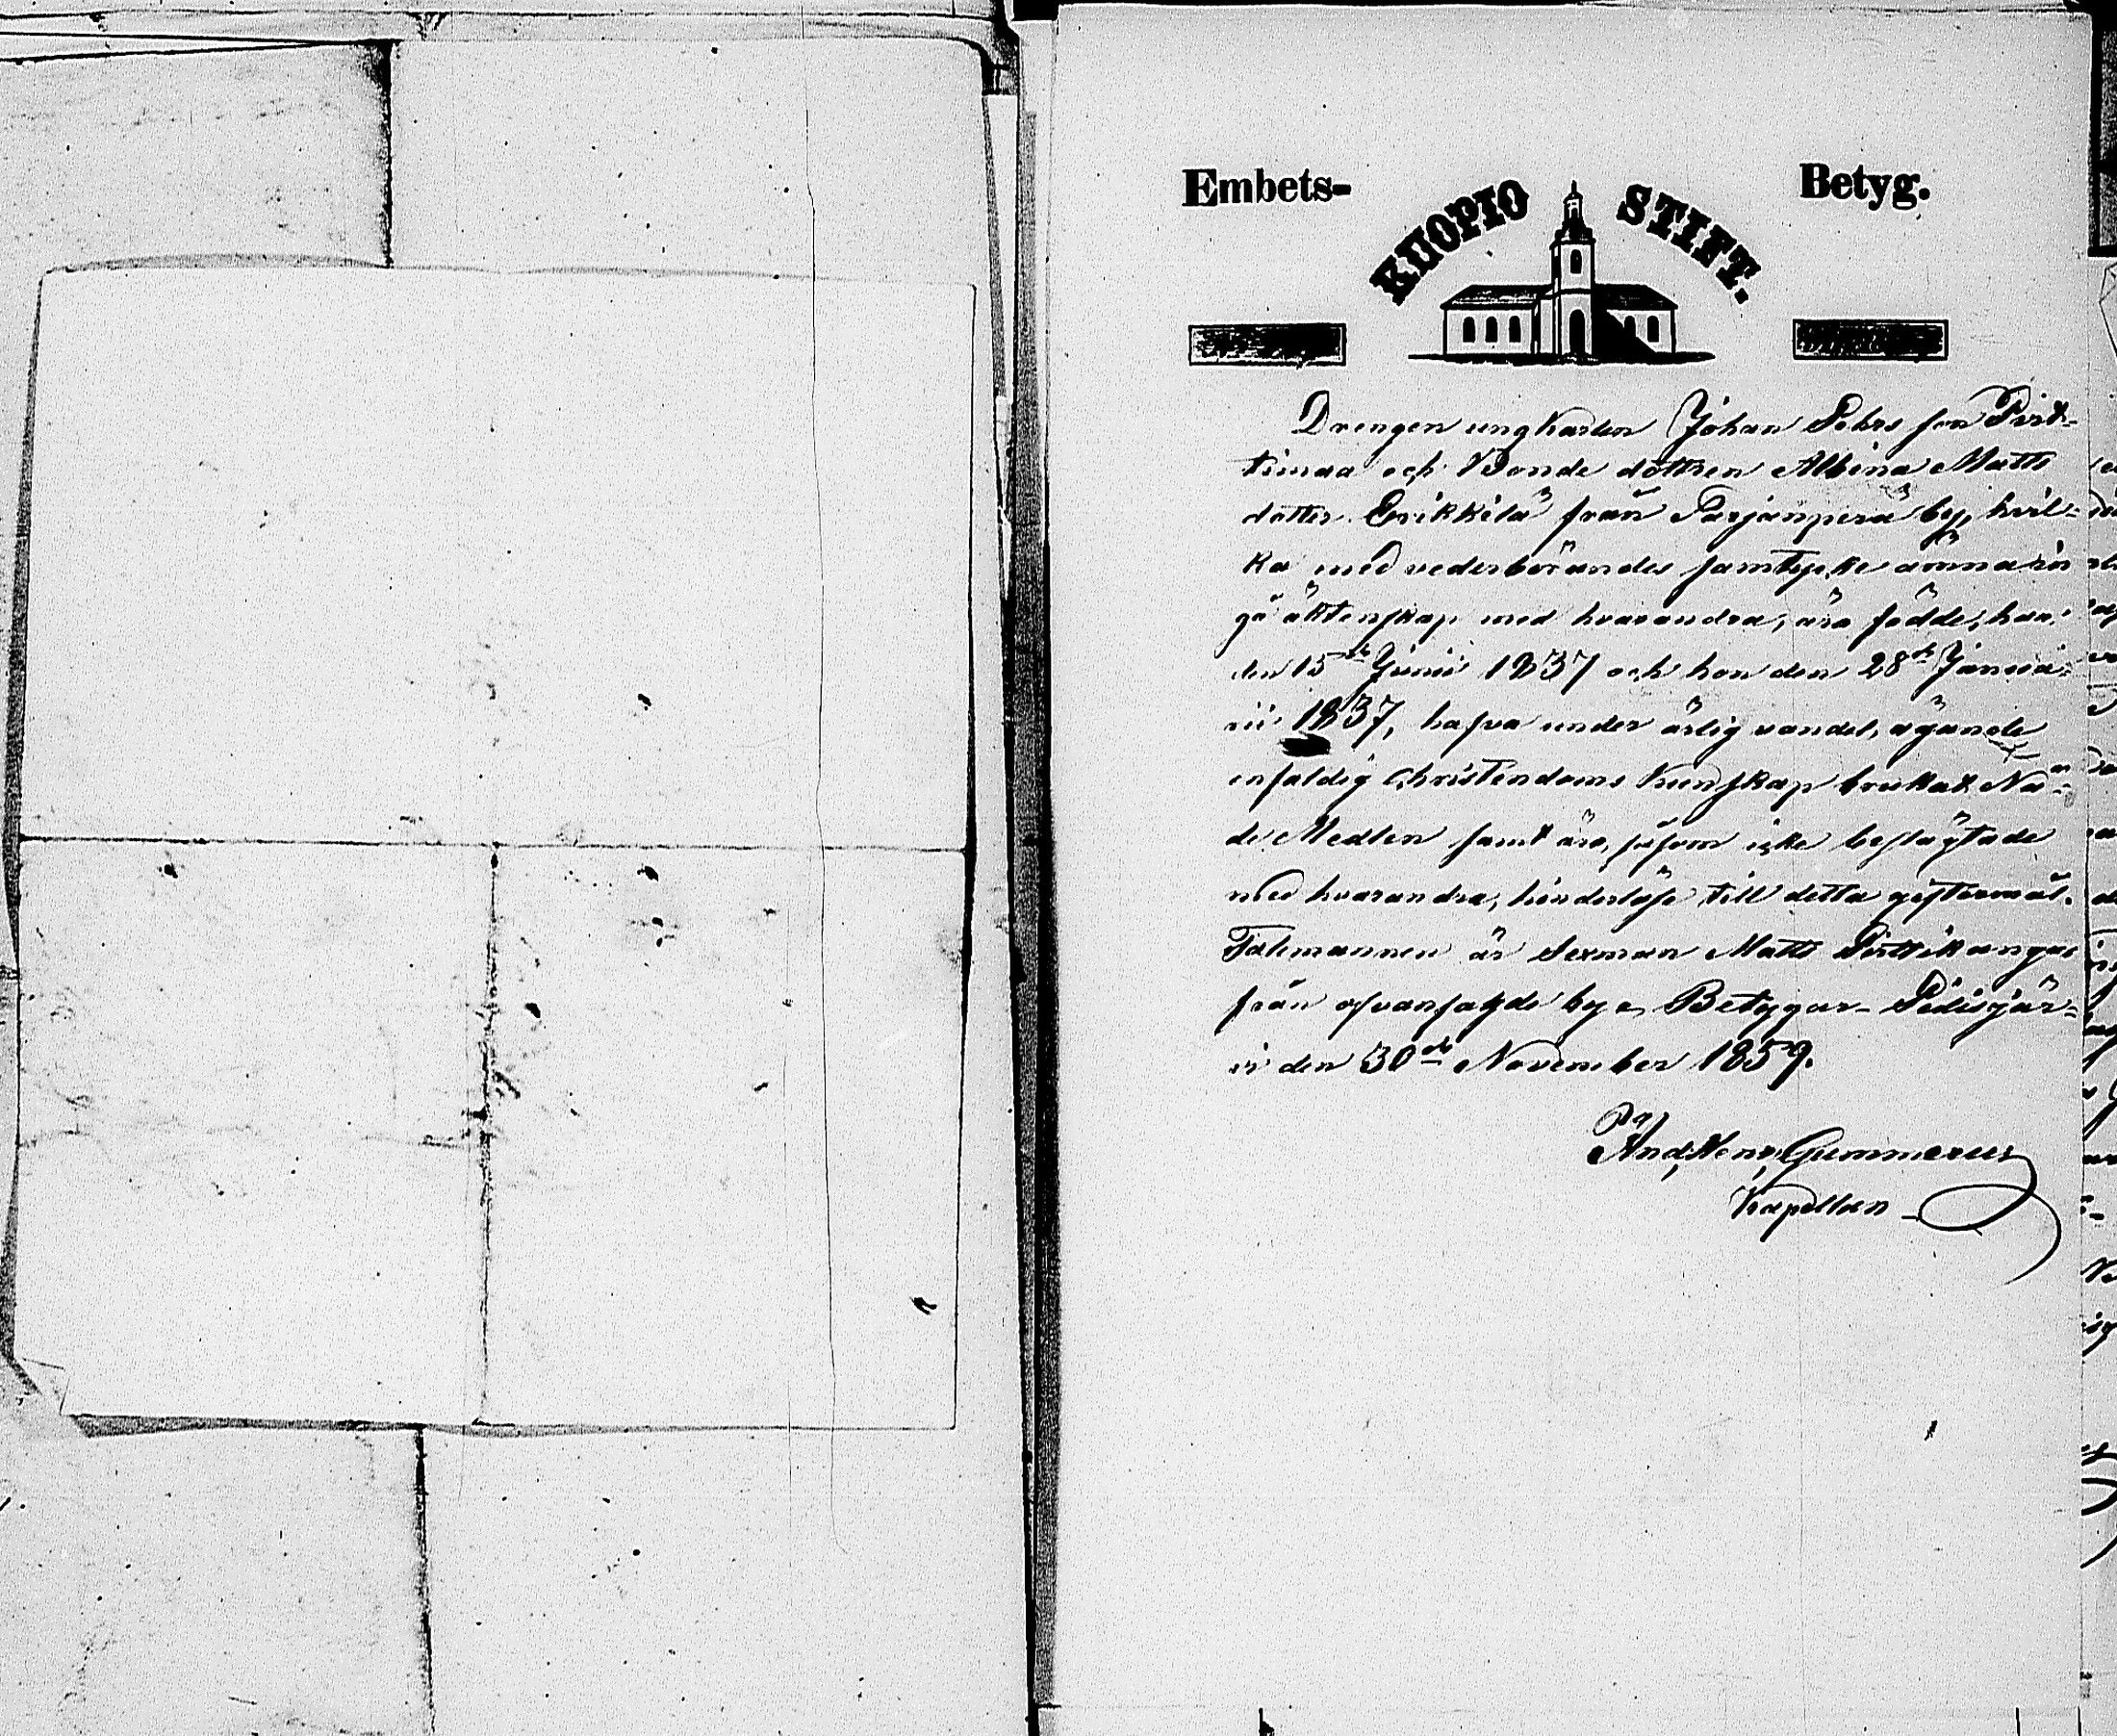 Embets- Betyg.
KUOPIO STIFT.
Drengen ungkarlen Johan Pehrs son Pirt-
timaa och Bonde dottren Albina Matts
dotter Erikkilä från Parjanperä by, hvil-
ka med vederbörandes samtycke ämna in
gå äktenskap med hvarandra, äro födde, han
den 15de Junii 1837 och hon den 28de Janua-
rii 1837, hafva under ärlig vandel, ägande
enfaldig Christendoms kunskap brukat Nå-
de Medlen samt äro, såsom icke beslägtade
med hvarandra, hinderlöse till detta giftermål.
Talemannen är Sexman Matts Pirttikangas
från ofvansagde by Betygar Pidisjär-
vi den 30de November 1859.
And, Henr, Gummerus
Kapellan